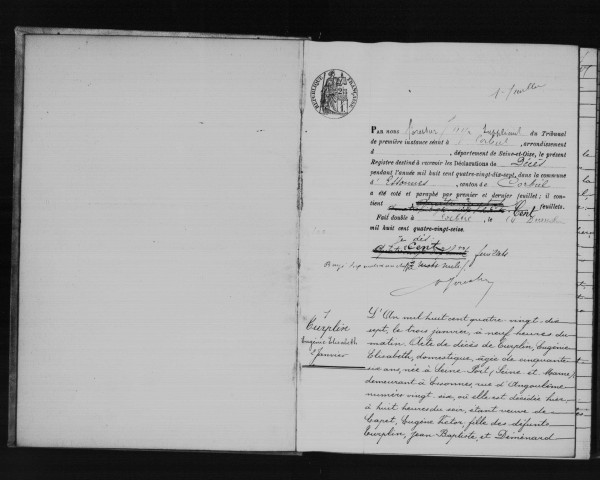 RÉPUBLIQUE FRANÇAISE
1er feuillet
PAR NOUS Juge suppléant du Tribunal
de première instance séant à Corbeil, arrondissement
d , département de Seine-et-Oise, le présent
Registre destiné à recevoir les Déclarations de Décès
pendant l'année mil huit cent quatre-vingt-dix-sept, dans la commune
d'Essonnes, canton de Corbeil
a été coté et paraphé par premier et dernier feuillet; il con-
tient Cent feuillets.
Fait double à Corbeil, le 16 Décembre
mil huit cent quatre-vingt-seize.
Cent feuillets
mots nuls
1
Turplin
Eugénie Elisabeth
2 Janvier
L'An mil huit cent quatre vingt-dix
sept, le trois janvier, à neuf heures du
matin. Acte de décès de Turplin, Eugénie
Elisabeth, domestique, âgée de cinquante
six ans, née à Seine-Port (Seine et Marne)
demeurant à Essonnes, rue d'Angoulême
numéro vingt six, où elle est décédée hier
à huit heures du soir, étant veuve de
Capet, Eugène Victor, fille des défunts
Turplin, Jean-Baptiste, et Déménard